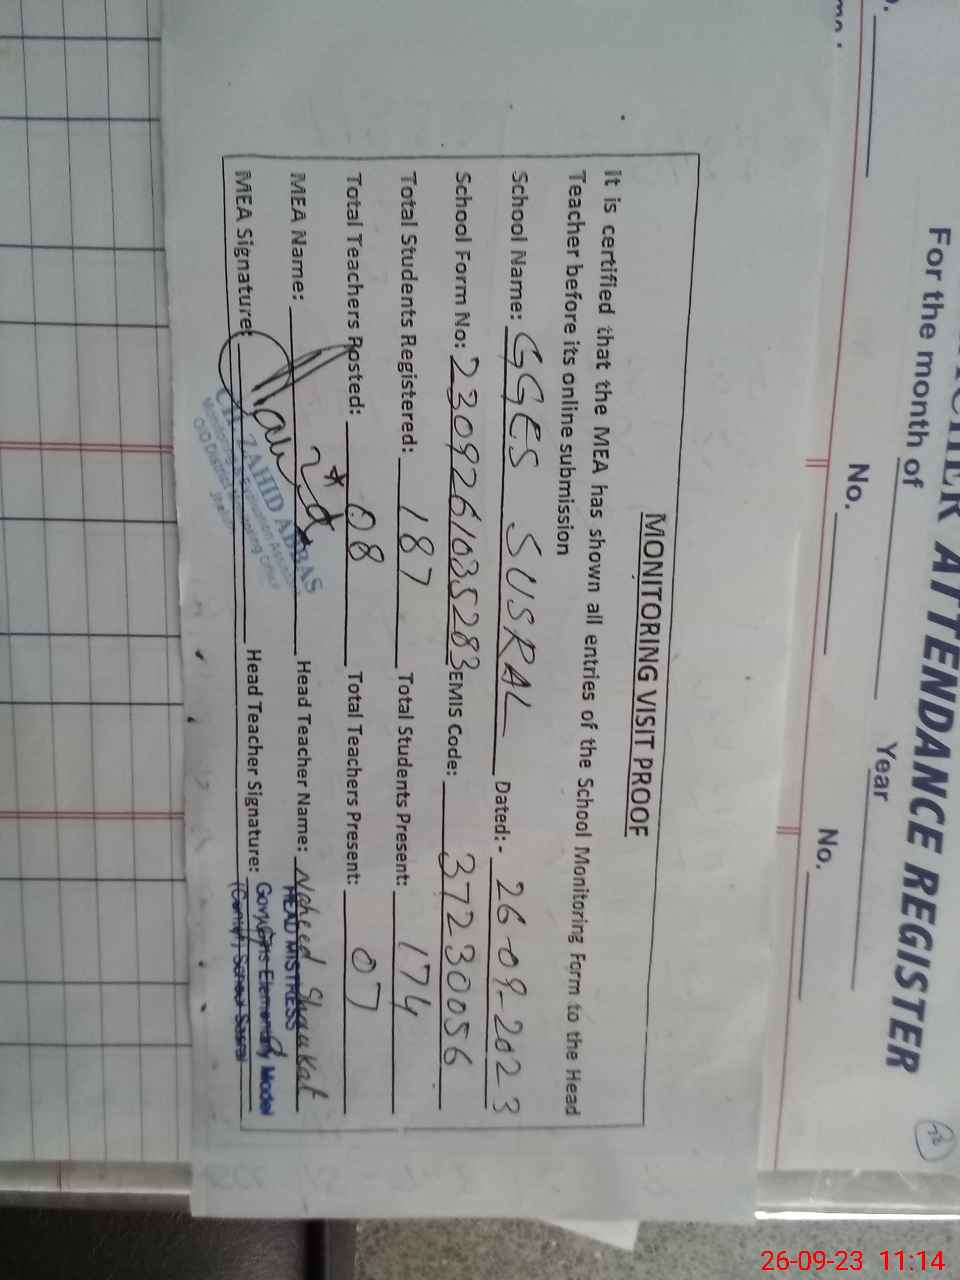 ATTENDANCE REGISTER
For the month of Year
No. No.
MONITORING VISIT PROOF
It is certified that the MEA has shown all entries of the School Monitoring Form to the Head
Teacher before its online submission
School Name: GGES SUSRAL Dated:- 26-09-2023
School Form No: 2309261035283 EMIS Code: 37230056
Total Students Registered: 187 Total Students Present: 174
Total Teachers Posted: 08 Total Teachers Present: 07
MEA Name: Head Teacher Name: Naheed Shaukat
HEAD MISTRESS
MEA Signature: Head Teacher Signature: Govt. Girls Elementary Model
CH. ZAHID ABBAS
Monitoring & Evaluation Assistant
O/O District Monitoring Officer
26-09-23 11:14